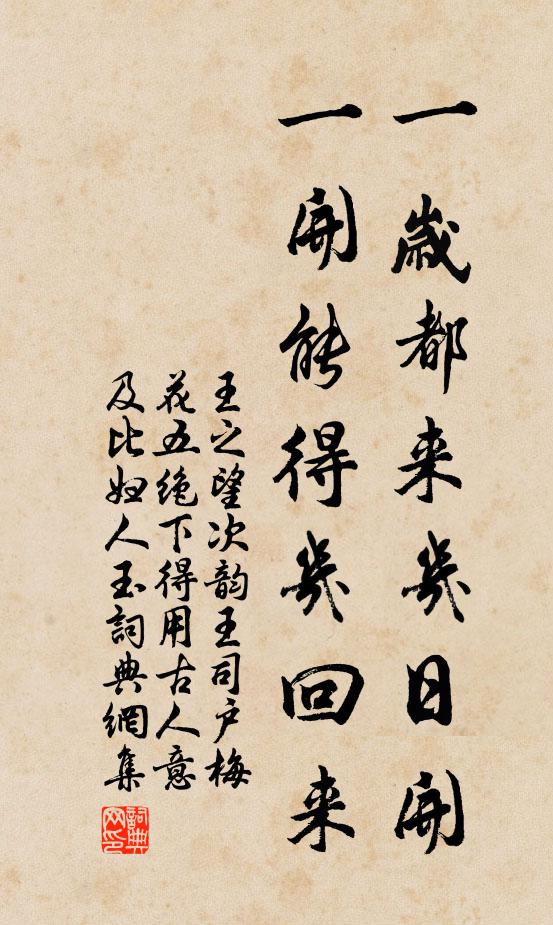 一歲都来幾日開
一開能得幾回来
王之望次韵王司户梅
花五绝下得用古人意
及比妇人玉詞典網集
詞典网印